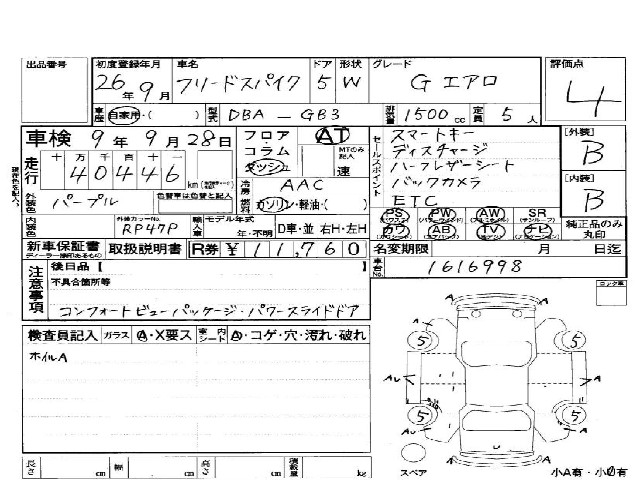 出品番号 初度登録年月 車名 ドア 形状 グレード 評価点
26年9月 フリードスパイク 5 W G エアロ 4
車歴 自家用・( ) 型式 DBA-GB3 排気量 1500cc 定員 5人
車検 9年9月28日 フロア AT セールスポイント スマートキー [外装]
走行 十 万 千 百 十 一 コラム MTのみ記入 ディスチャージ B
40446 km ダッシュ 速 ハーフレザーシート
外装色 パープル 色替車は色替と記入 冷房 AAC バックカメラ [内装]
燃料 ガソリン・軽油・( ) ETC B
内装色 外装カラーNo. RP47P 輸入車 モデル年式 年・不明 D車・並 右H・左H
PS PW AW SR 純正品のみ
カワ AB TV ナビ 丸印
新車保証書 取扱説明書 R券 ¥11,760 名変期限 月 日迄
ディーラー捺印あるもの
注意事項 後日品 [ ] 車台No. 1616998
不具合箇所等
コンフォートビューパッケージ・パワースライドドア
検査員記入 ガラス A・X要ス 車内シート A・コゲ・穴・汚れ・破れ
ホイルA
A
5 5
AU A A
5 5
AU A
A U
スペア 小A有・小U有
長さ cm 幅 cm 高さ cm 積載量 kg